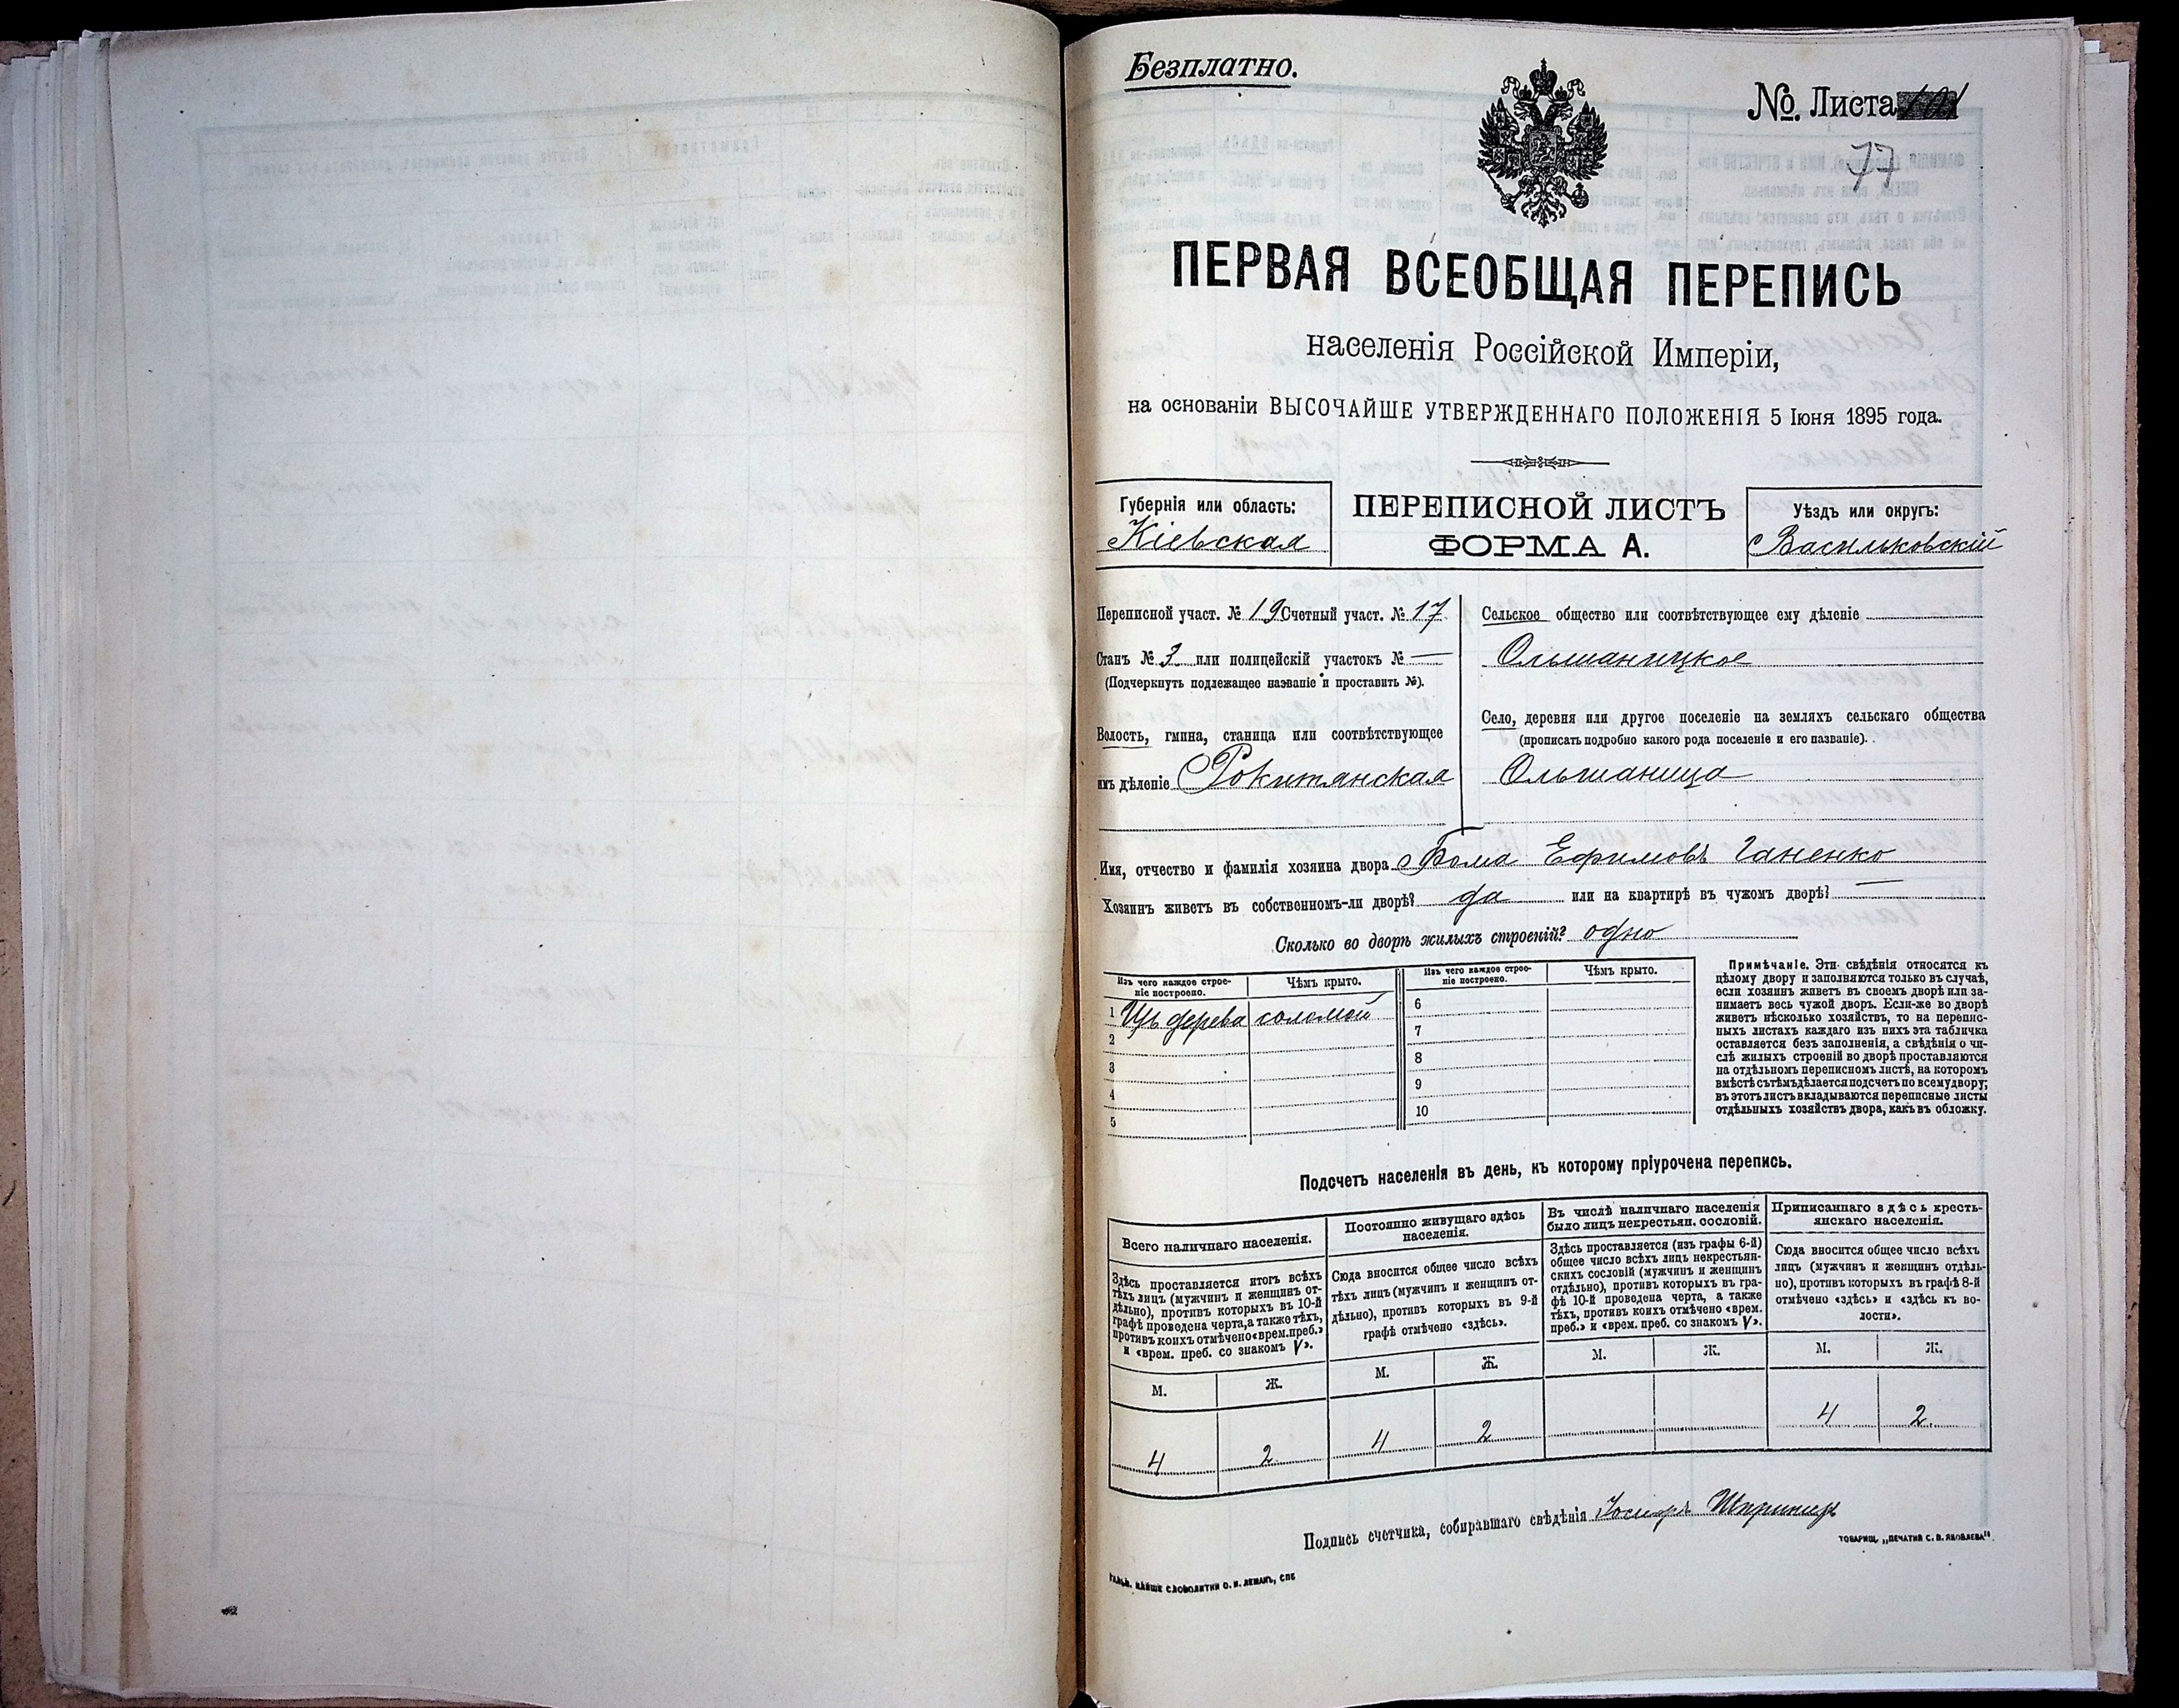 Безплатно.
№. Листа
77
ПЕРВАЯ ВСЕОБЩАЯ ПЕРЕПИСЬ
населенія Россійской Имперіи,
на основаніи ВЫСОЧАЙШЕ УТВЕРЖДЕННАГО ПОЛОЖЕНІЯ 5 Іюня 1895 года.
Губернія или область:
Кіевская
ПЕРЕПИСНОЙ ЛИСТЪ
ФОРМА А.
Уѣздъ или округъ:
Васильковскій
Переписной участ. № 19 Счетный участ. № 17
Станъ № 3 или полицейскій участокъ № —
(Подчеркнуть подлежащее названіе и проставить №).
Волость, гмина, станица или соотвѣтствующее
имъ дѣленіе Рокитянская
Сельское общество или соотвѣтствующее ему дѣленіе
Ольшаницкое
Село, деревня или другое поселеніе на земляхъ сельскаго общества
(прописать подробно какого рода поселеніе и его названіе).
Ольшаница
Имя, отчество и фамилія хозяина двора Ѳома Ефимовъ Ганенко
Хозяинъ живетъ въ собственномъ-ли дворѣ? да или на квартирѣ въ чужомъ дворѣ? —
Сколько во дворѣ жилыхъ строеній? одно
Изъ чего каждое строе-
ніе построено.
Чѣмъ крыто.
Изъ чего каждое строе-
ніе построено.
Чѣмъ крыто.
1 Изъ дерева соломой
2
3
4
5
6
7
8
9
10
Примѣчаніе. Эти свѣдѣнія относятся къ
цѣлому двору и заполняются только въ случаѣ,
если хозяинъ живетъ въ своемъ дворѣ или за-
нимаетъ весь чужой дворъ. Если-же во дворѣ
живетъ нѣсколько хозяйствъ, то на перепис-
ныхъ листахъ каждаго изъ нихъ эта табличка
оставляется безъ заполненія, а свѣдѣнія о чи-
слѣ жилыхъ строеній во дворѣ проставляются
на отдѣльномъ переписномъ листѣ, на которомъ
вмѣстѣ съ тѣмъ дѣлается подсчетъ по всему двору;
въ этотъ листъ вкладываются переписные листы
отдѣльныхъ хозяйствъ двора, какъ въ обложку.
Подсчетъ населенія въ день, къ которому пріурочена перепись.
Всего наличнаго населенія.
Здѣсь проставляется итогъ всѣхъ
тѣхъ лицъ (мужчинъ и женщинъ от-
дѣльно), противъ которыхъ въ 10-й
графѣ проведена черта, а также тѣхъ,
противъ коихъ отмѣчено «врем. преб.»
и «врем. преб. со знакомъ V».
М. Ж.
4 2
Постоянно живущаго здѣсь
населенія.
Сюда вносится общее число всѣхъ
тѣхъ лицъ (мужчинъ и женщинъ от-
дѣльно), противъ которыхъ въ 9-й
графѣ отмѣчено «здѣсь».
М. Ж.
4 2
Въ числѣ наличнаго населенія
было лицъ некрестьян. сословій.
Здѣсь проставляется (изъ графы 6-й)
общее число всѣхъ лицъ некрестьян-
скихъ сословій (мужчинъ и женщинъ
отдѣльно), противъ которыхъ въ гра-
фѣ 10-й проведена черта, а также
тѣхъ, противъ коихъ отмѣчено «врем.
преб.» и «врем. преб. со знакомъ V».
М. Ж.
Приписаннаго здѣсь кресть-
янскаго населенія.
Сюда вносится общее число всѣхъ
лицъ (мужчинъ и женщинъ отдѣль-
но), противъ которыхъ въ графѣ 8-й
отмѣчено «здѣсь» и «здѣсь къ во-
лости».
М. Ж.
4 2
Подпись счетчика, собиравшаго свѣдѣнія Іосифъ
ТОВАРИЩ. „ПЕЧАТНЯ С. П. ЯКОВЛЕВА"
СЛОВОЛИТНИ О. И. ЛЕМАНЪ, СПБ